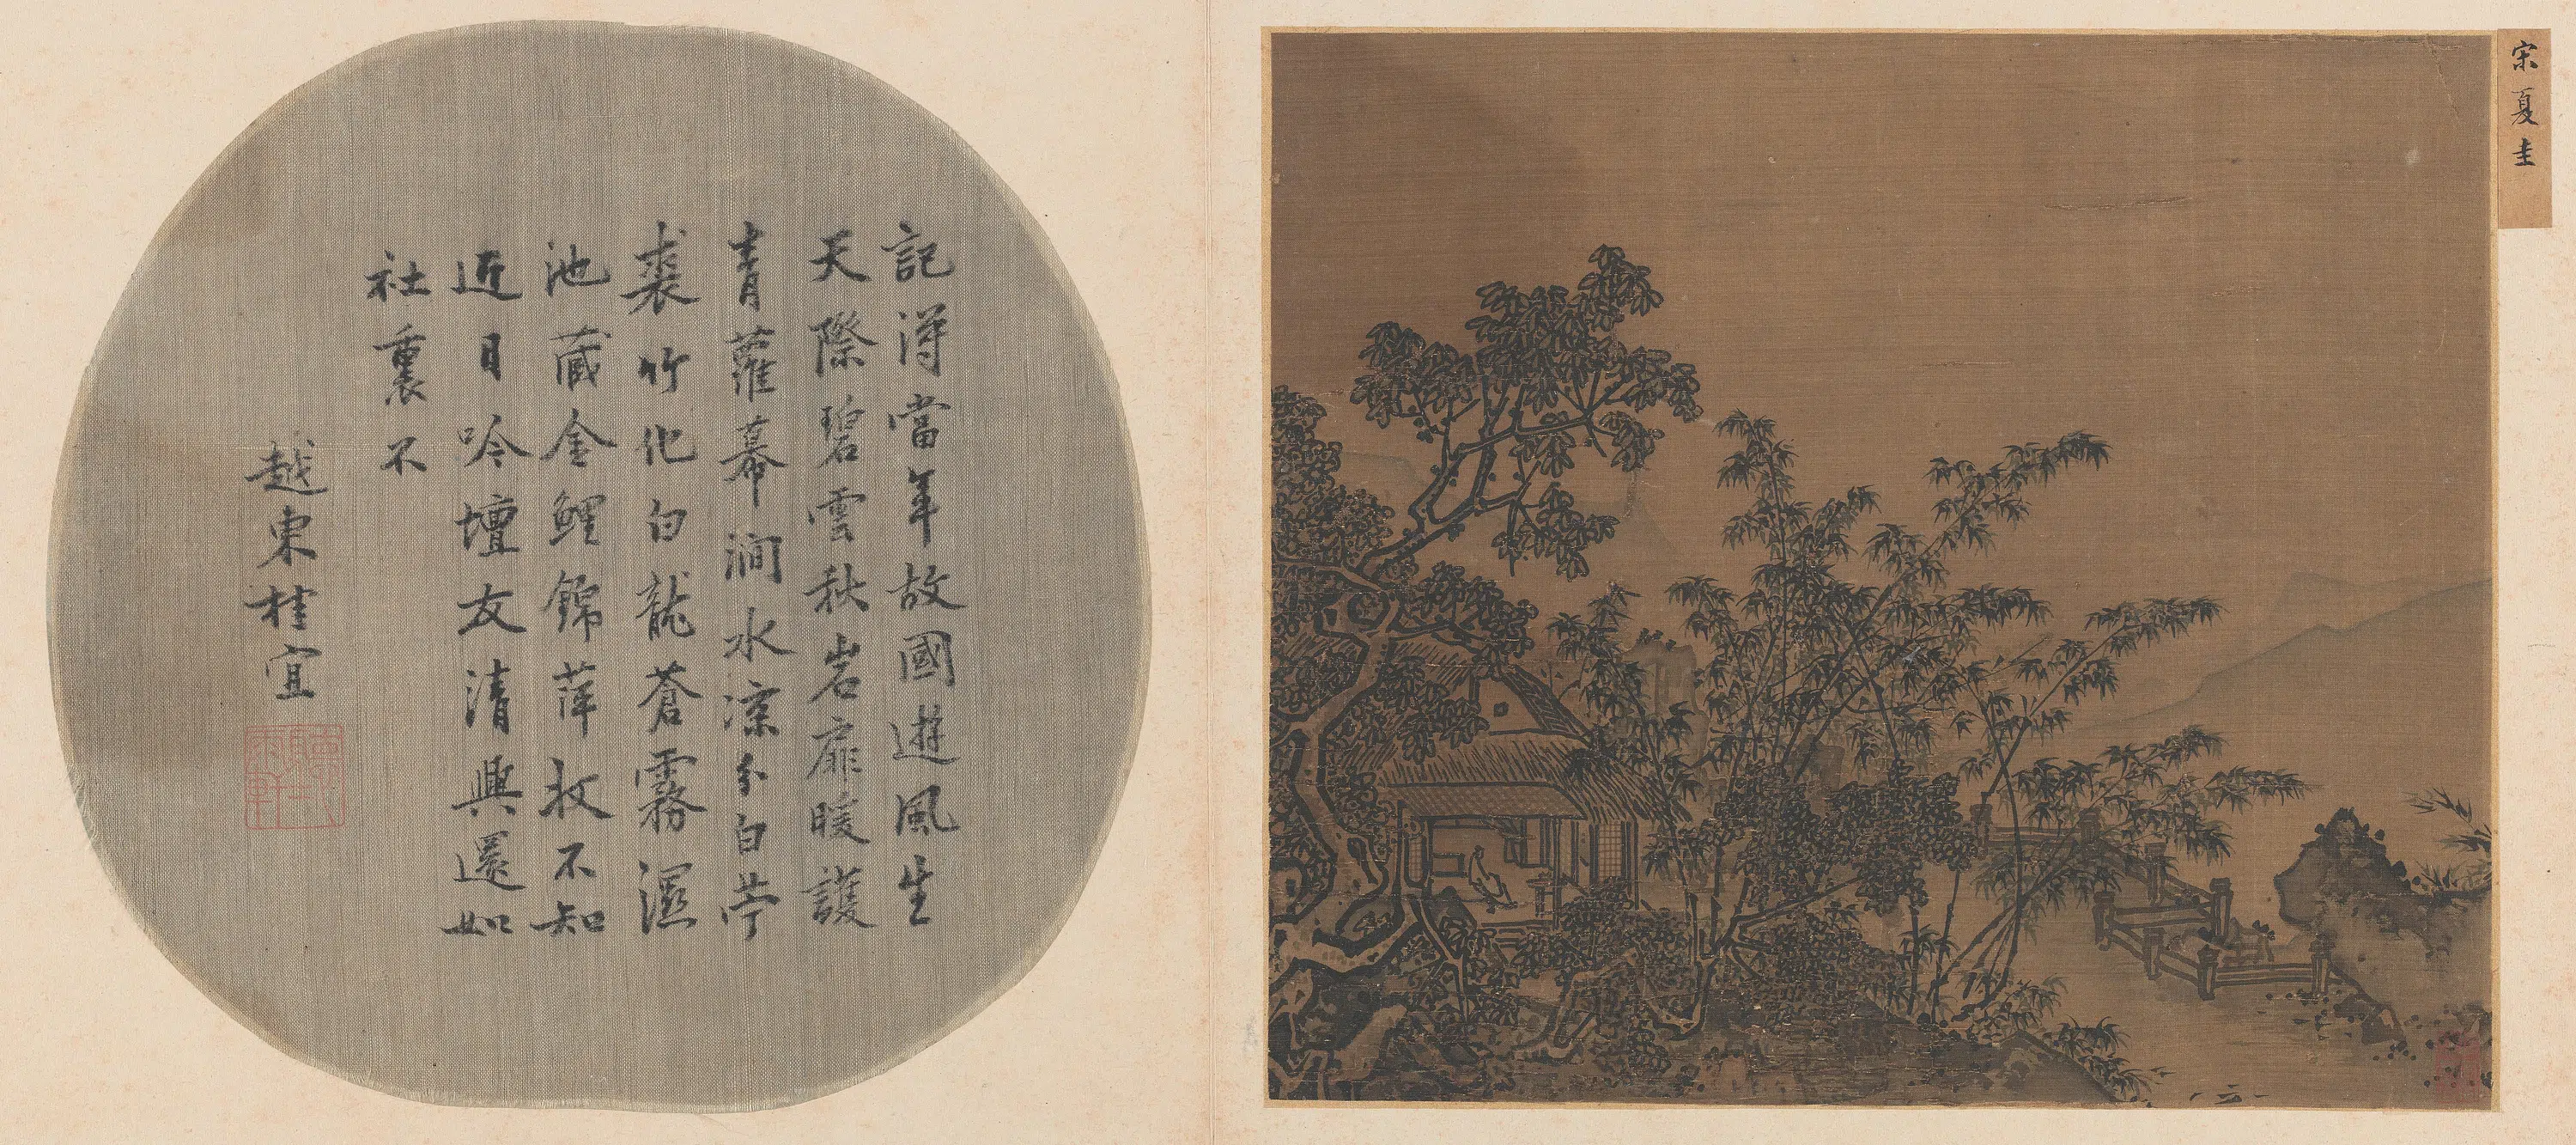 宋夏圭
記得當年故國遊風生
天際碧雲秋岩扉暖護
青蘿幕澗水涼分白苧
裘竹化白龍蒼霧濕
池藏金鯉錦萍收不知
近日吟壇友清興還如
社裏不
越東桂宜